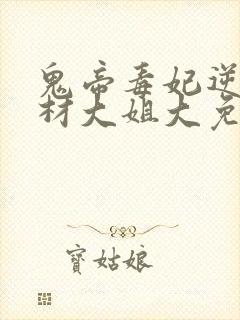 鬼帝毒妃逆
材大姐大免
寶姑娘